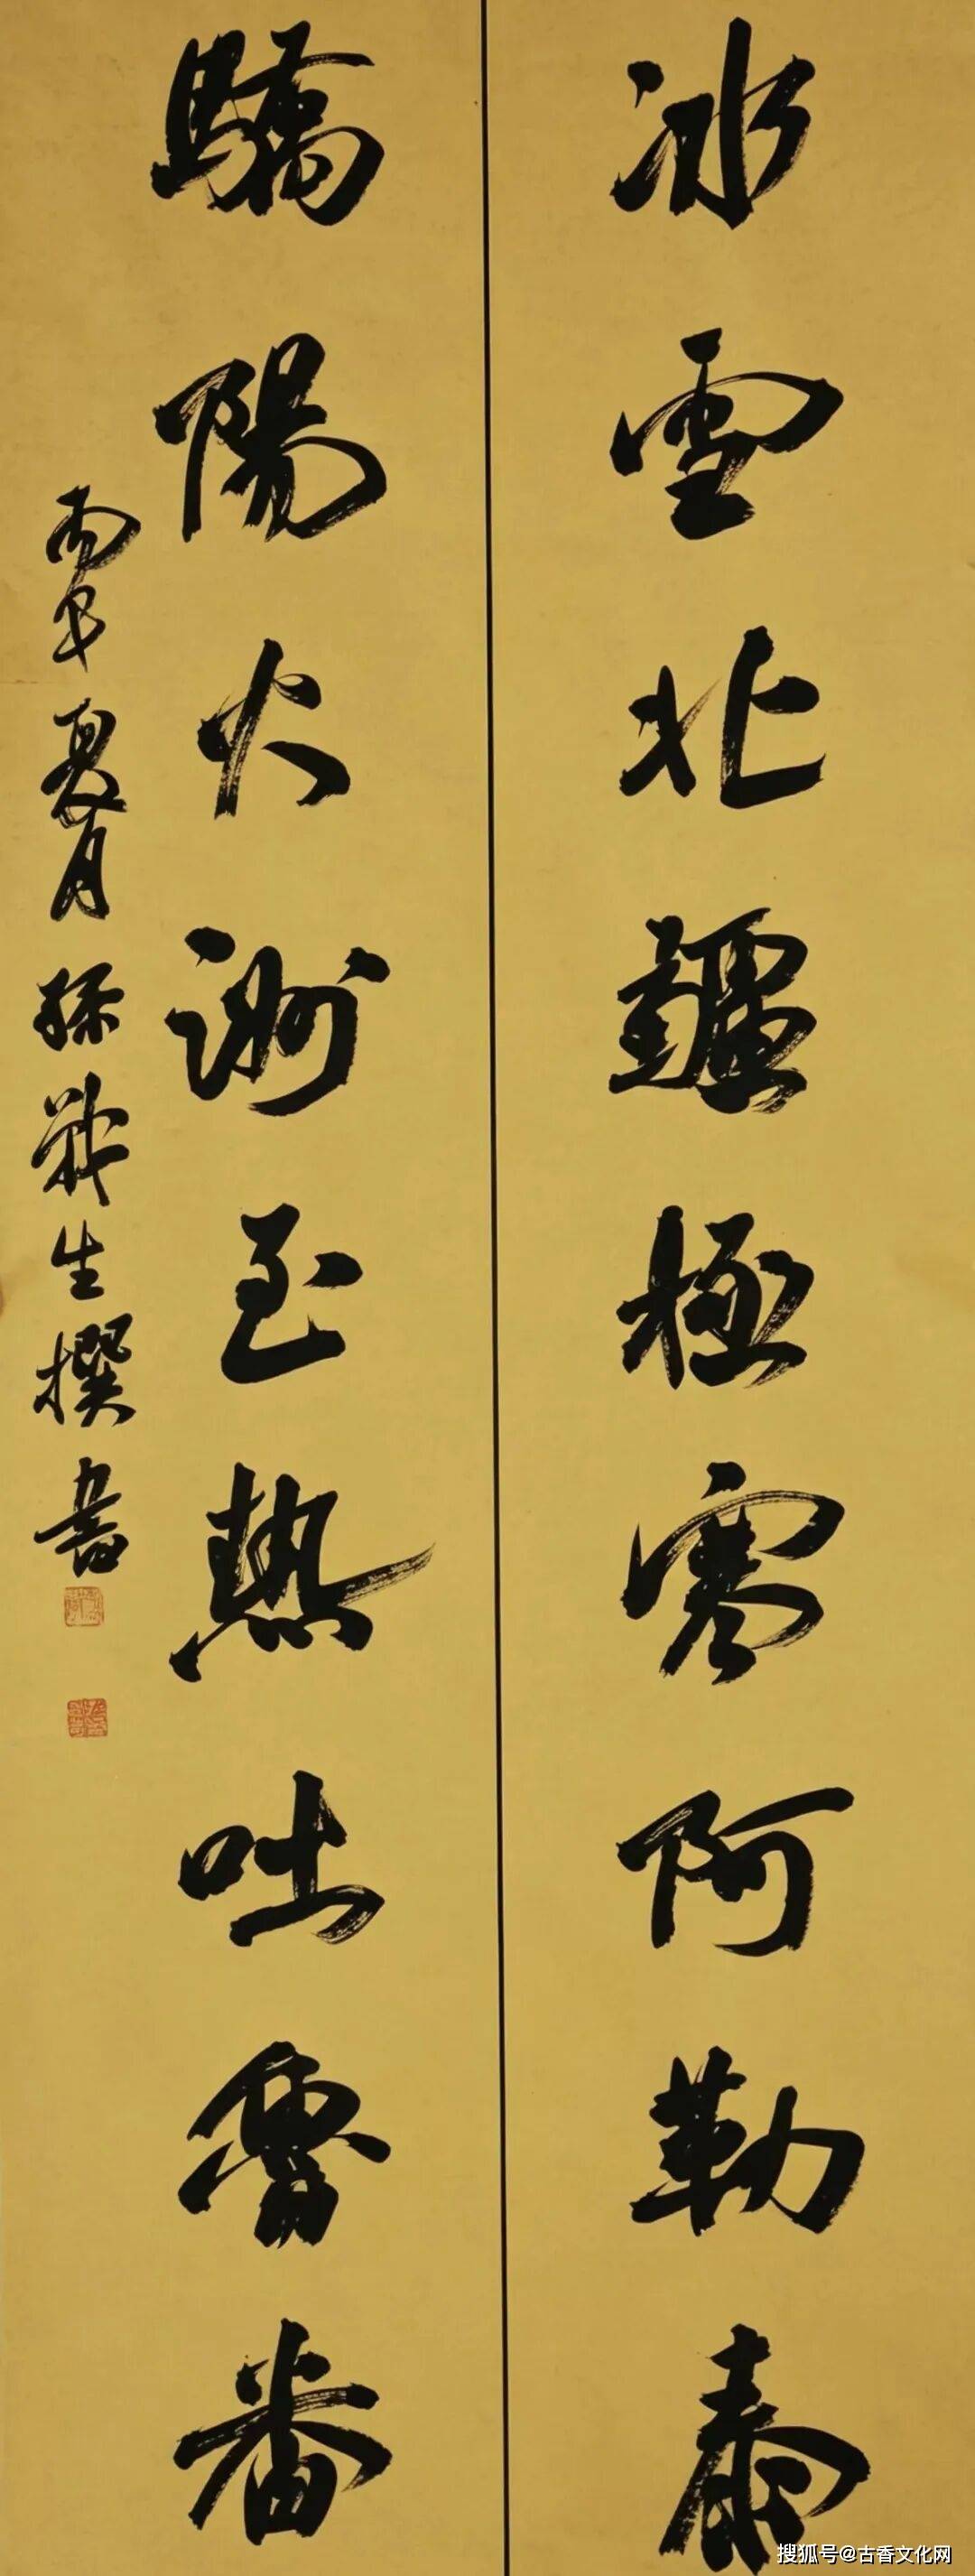 冰雪北疆極寒阿勒泰
驕陽火洲至熱吐魯番
丙午夏月孫戰生撰書
搜狐号@古香文化网